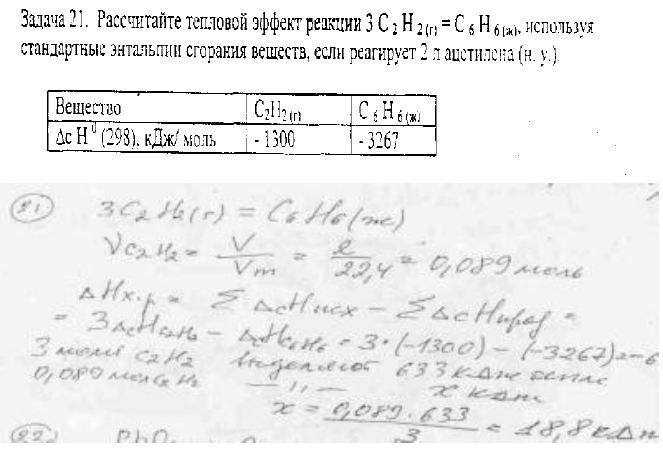 Задача 21. Рассчитайте тепловой эффект реакции 3 C 2 H 2 (г) = C 6 H 6 (ж), используя
стандартные энтальпии сгорания веществ, если реагирует 2 л ацетилена (н. у.)
Вещество C2H2 (г) C 6 H 6 (ж)
Δc H 0 (298), кДж/ моль - 1300 - 3267
21 3C2H2(г) = C6H6(ж)
νC2H2 = V/Vm = 2/22,4 = 0,089 моль
ΔHх.р = Σ ΔcHисх – Σ ΔcHпрод =
= 3ΔcHC2H2 – ΔcHC6H6 = 3·(-1300) – (-3267) = -6
3 моль C2H2 выделяют 633 кДж тепла
0,089 моль C2H2 –,,– x кДж
x = 0,089 · 633 / 3 = 18,8 кДж
22